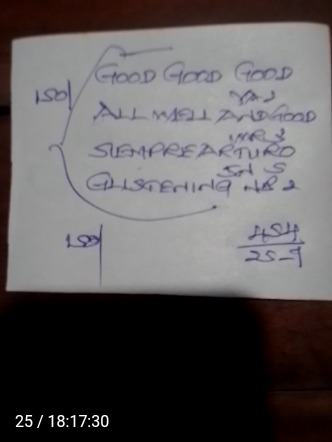 GOOD GOOD GOOD
150/
ALL WELL AND GOOD
SIEMPRE ARTURO
GLISTENING NB 2
150
454
25-9
25 / 18:17:30